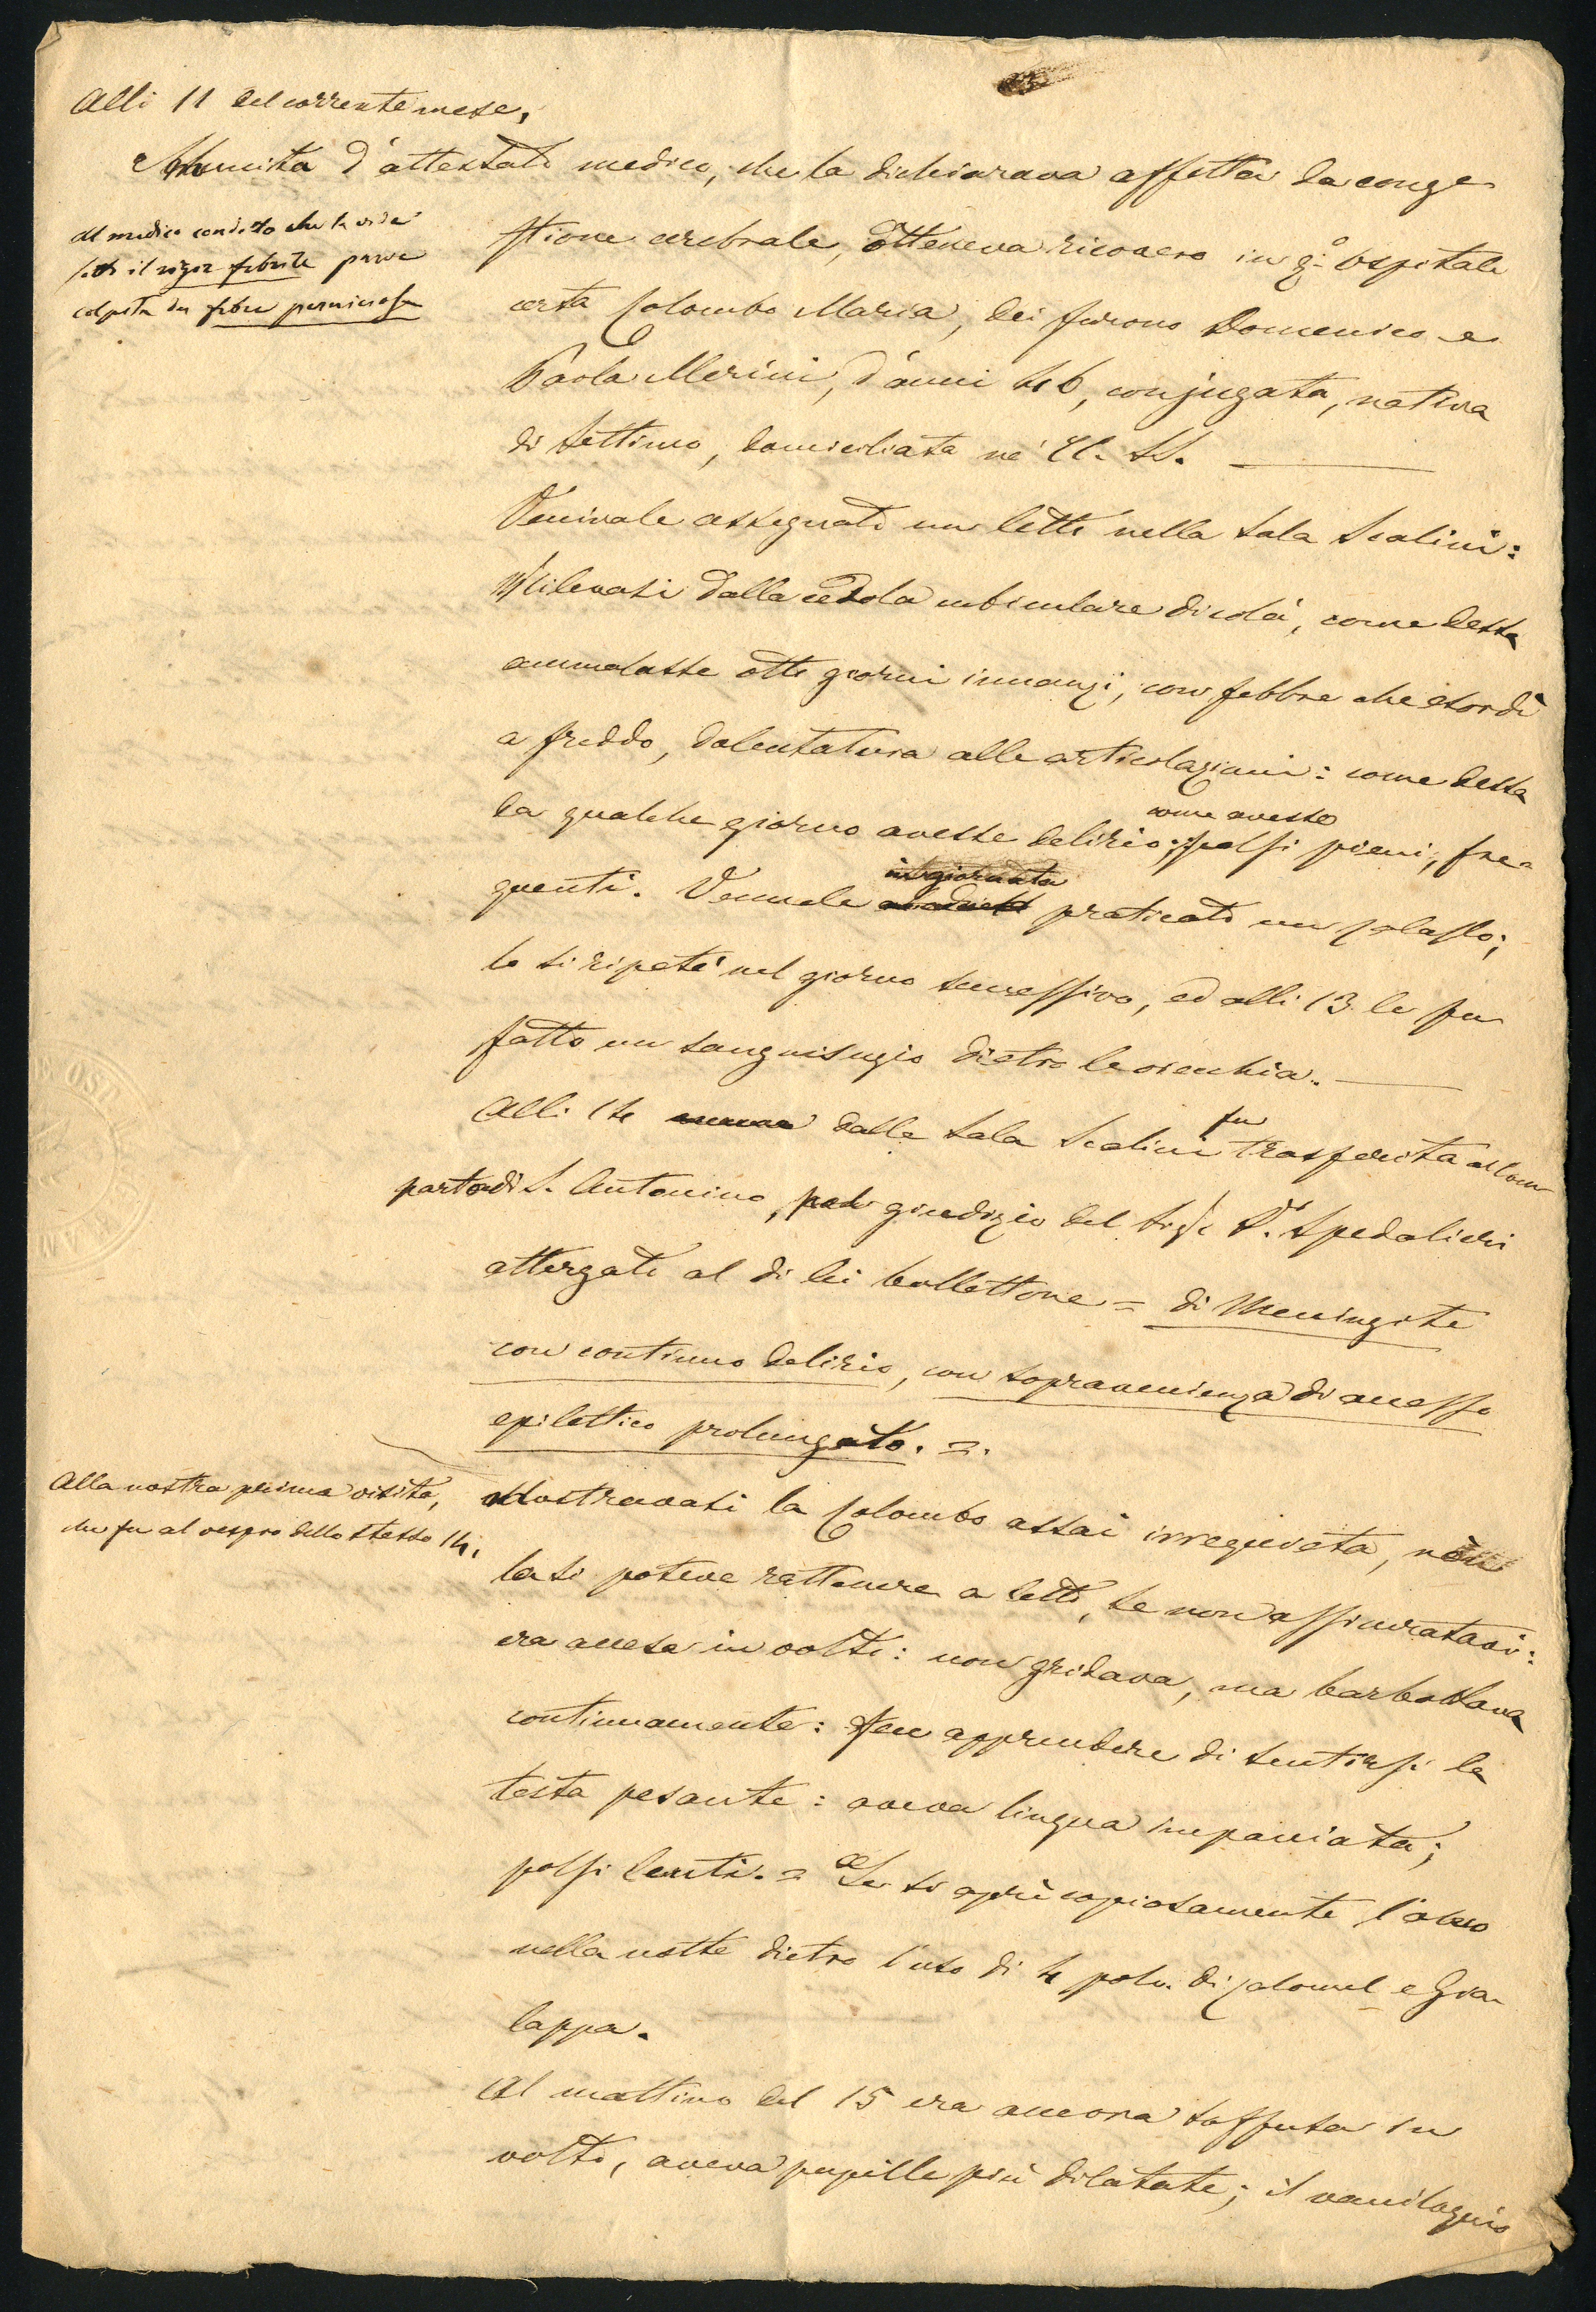 Alli 11 del corrente mese,
Munita d'attestato medico, che la dichiarava affetta da conge
stione cerebrale, otteneva ricovero in q.o Ospitale
certa Colombo Maria, dei furono Domenico e
Paola Merini, d'anni 46, conjugata, nativa
di Settimo, domiciliata ne' CC. SS.
al medico condotto che la vide
sotto il rigor febrile parve
colpita da febre perniciosa
Venivale assegnato un letto nella Sala Scalini:
Rilevasi dalla cedola cubiculare di colà, come dessa
ammalasse otto giorni innanzi, con febbre che esordì
a freddo, dolentatura alle articolazioni: come dessa
da qualche giorno avesse delirio; come avesse polsi pieni, fre-
quenti. Vennele in giornata praticato un salasso;
lo si ripeté nel giorno successivo, ed alli 13 le fu
fatto un sanguisugio dietro le orecchia.
Alli 14 dalla Sala Scalini fu trasferita al com
parto di S. Antonino, giudizio del Sig.r D.r Spedalieri
attergato al di lei bollettone = di Meningite
con continuo delirio, con sopravenienza di accesso
epilettico prolungato. =.
Alla nostra prima visita,
che fu al vespro dello stesso 14,
mostravasi la Colombo assai irrequieta, non
la si poteva rattenere a letto, se non assicuratavi:
era accesa in volto: non gridava, ma barbottava
continuamente: fece apprendere di sentirsi la
testa pesante: aveva lingua impaniata;
polsi lenti. = Le si aprì copiosamente l'alvo
nella notte dietro l'uso di 4 polv. di Calomel e Gia-
lappa.
Al mattino del 15 era ancora soffusa in
volto, aveva pupille più dilatate; il vaniloquio